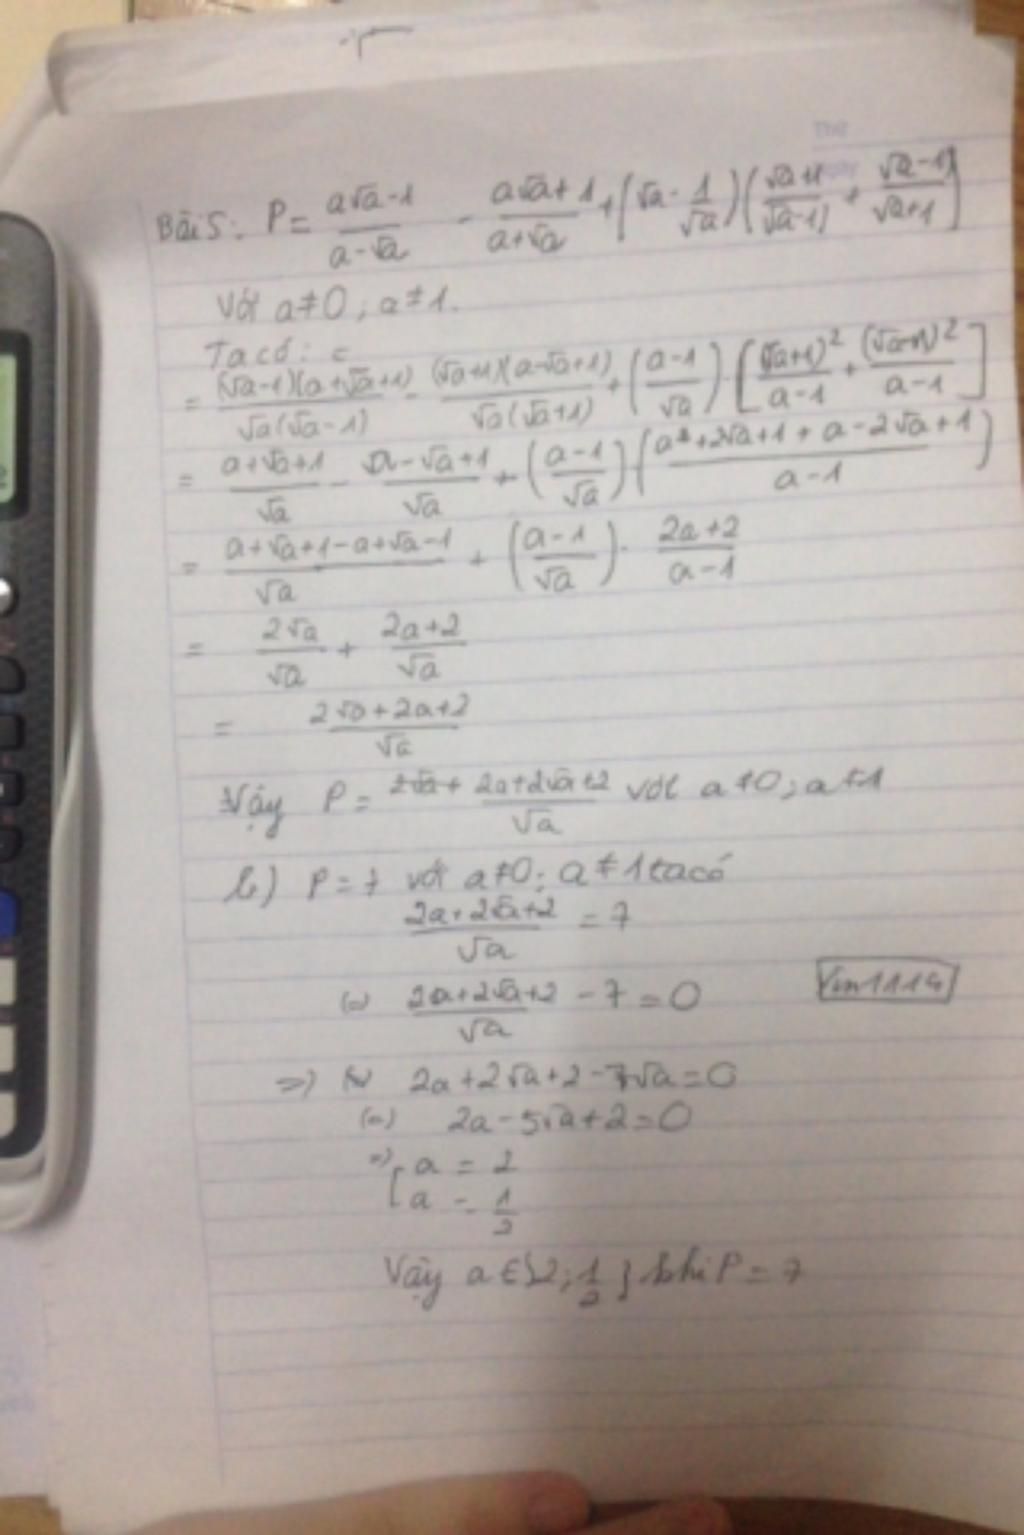 Thứ
Ngày
Bài 5: P = \frac{a√a-1}{a-√a} - \frac{a√a+1}{a+√a} + (√a - \frac{1}{√a})(\frac{√a+1}{√a-1} + \frac{√a-1}{√a+1})
Với a≠0; a≠1.
Ta có: =
= \frac{(√a-1)(a+√a+1)}{√a(√a-1)} - \frac{(√a+1)(a-√a+1)}{√a(√a+1)} + (\frac{a-1}{√a}) . [\frac{(√a+1)²}{a-1} + \frac{(√a-1)²}{a-1}]
= \frac{a+√a+1}{√a} - \frac{a-√a+1}{√a} + (\frac{a-1}{√a}) . (\frac{a+2√a+1+a-2√a+1}{a-1})
= \frac{a+√a+1-a+√a-1}{√a} + (\frac{a-1}{√a}) . \frac{2a+2}{a-1}
= \frac{2√a}{√a} + \frac{2a+2}{√a}
= \frac{2√a+2a+2}{√a}
Vậy P = \frac{2a+2√a+2}{√a} với a≠0; a≠1
b) P = 7 với a≠0; a≠1 ta có
\frac{2a+2√a+2}{√a} = 7
(=) \frac{2a+2√a+2}{√a} - 7 = 0
Vin1114
=) 2a+2√a+2-7√a=0
(=) 2a-5√a+2=0
=) [a = 2
[a = \frac{1}{2}
Vậy a ∈ {2; \frac{1}{2}} khi P = 7